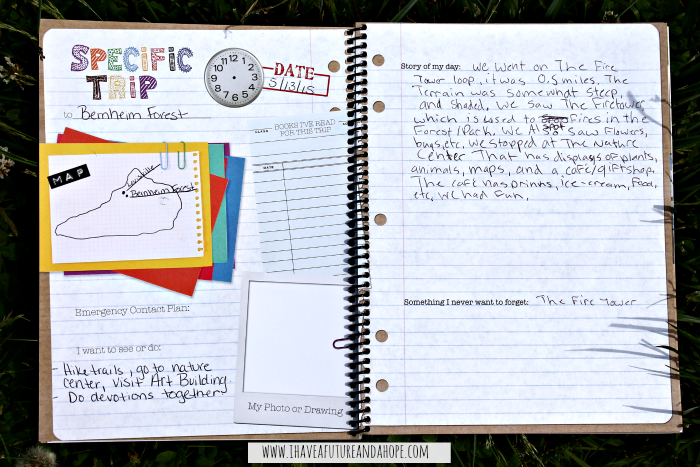 SPECIFIC
TRIP
DATE
5/13/15
to Bernheim Forest
BOOKS I'VE READ
FOR THIS TRIP
DATE
MAP
Louisville
Bernheim Forest
Emergency Contact Plan:
I want to see or do:
- Hike trails, go to nature
center, visit Art Building
- Do devotions together
My Photo or Drawing
Story of my day: We went on The Fire
Tower loop, it was 0.5 miles. The
Terrain was somewhat steep,
and shaded. We saw The Firetower
which is used to spot fires in the
Forest/Park. We Al so saw Flowers,
bugs, etc. We stopped at The Nature
Center That has displays of plants,
animals, maps, and a cafe/giftshop.
The cafe has drinks, ice-cream, food,
etc. We had fun.
Something I never want to forget: The Fire Tower
WWW.IHAVEAFUTUREANDAHOPE.COM